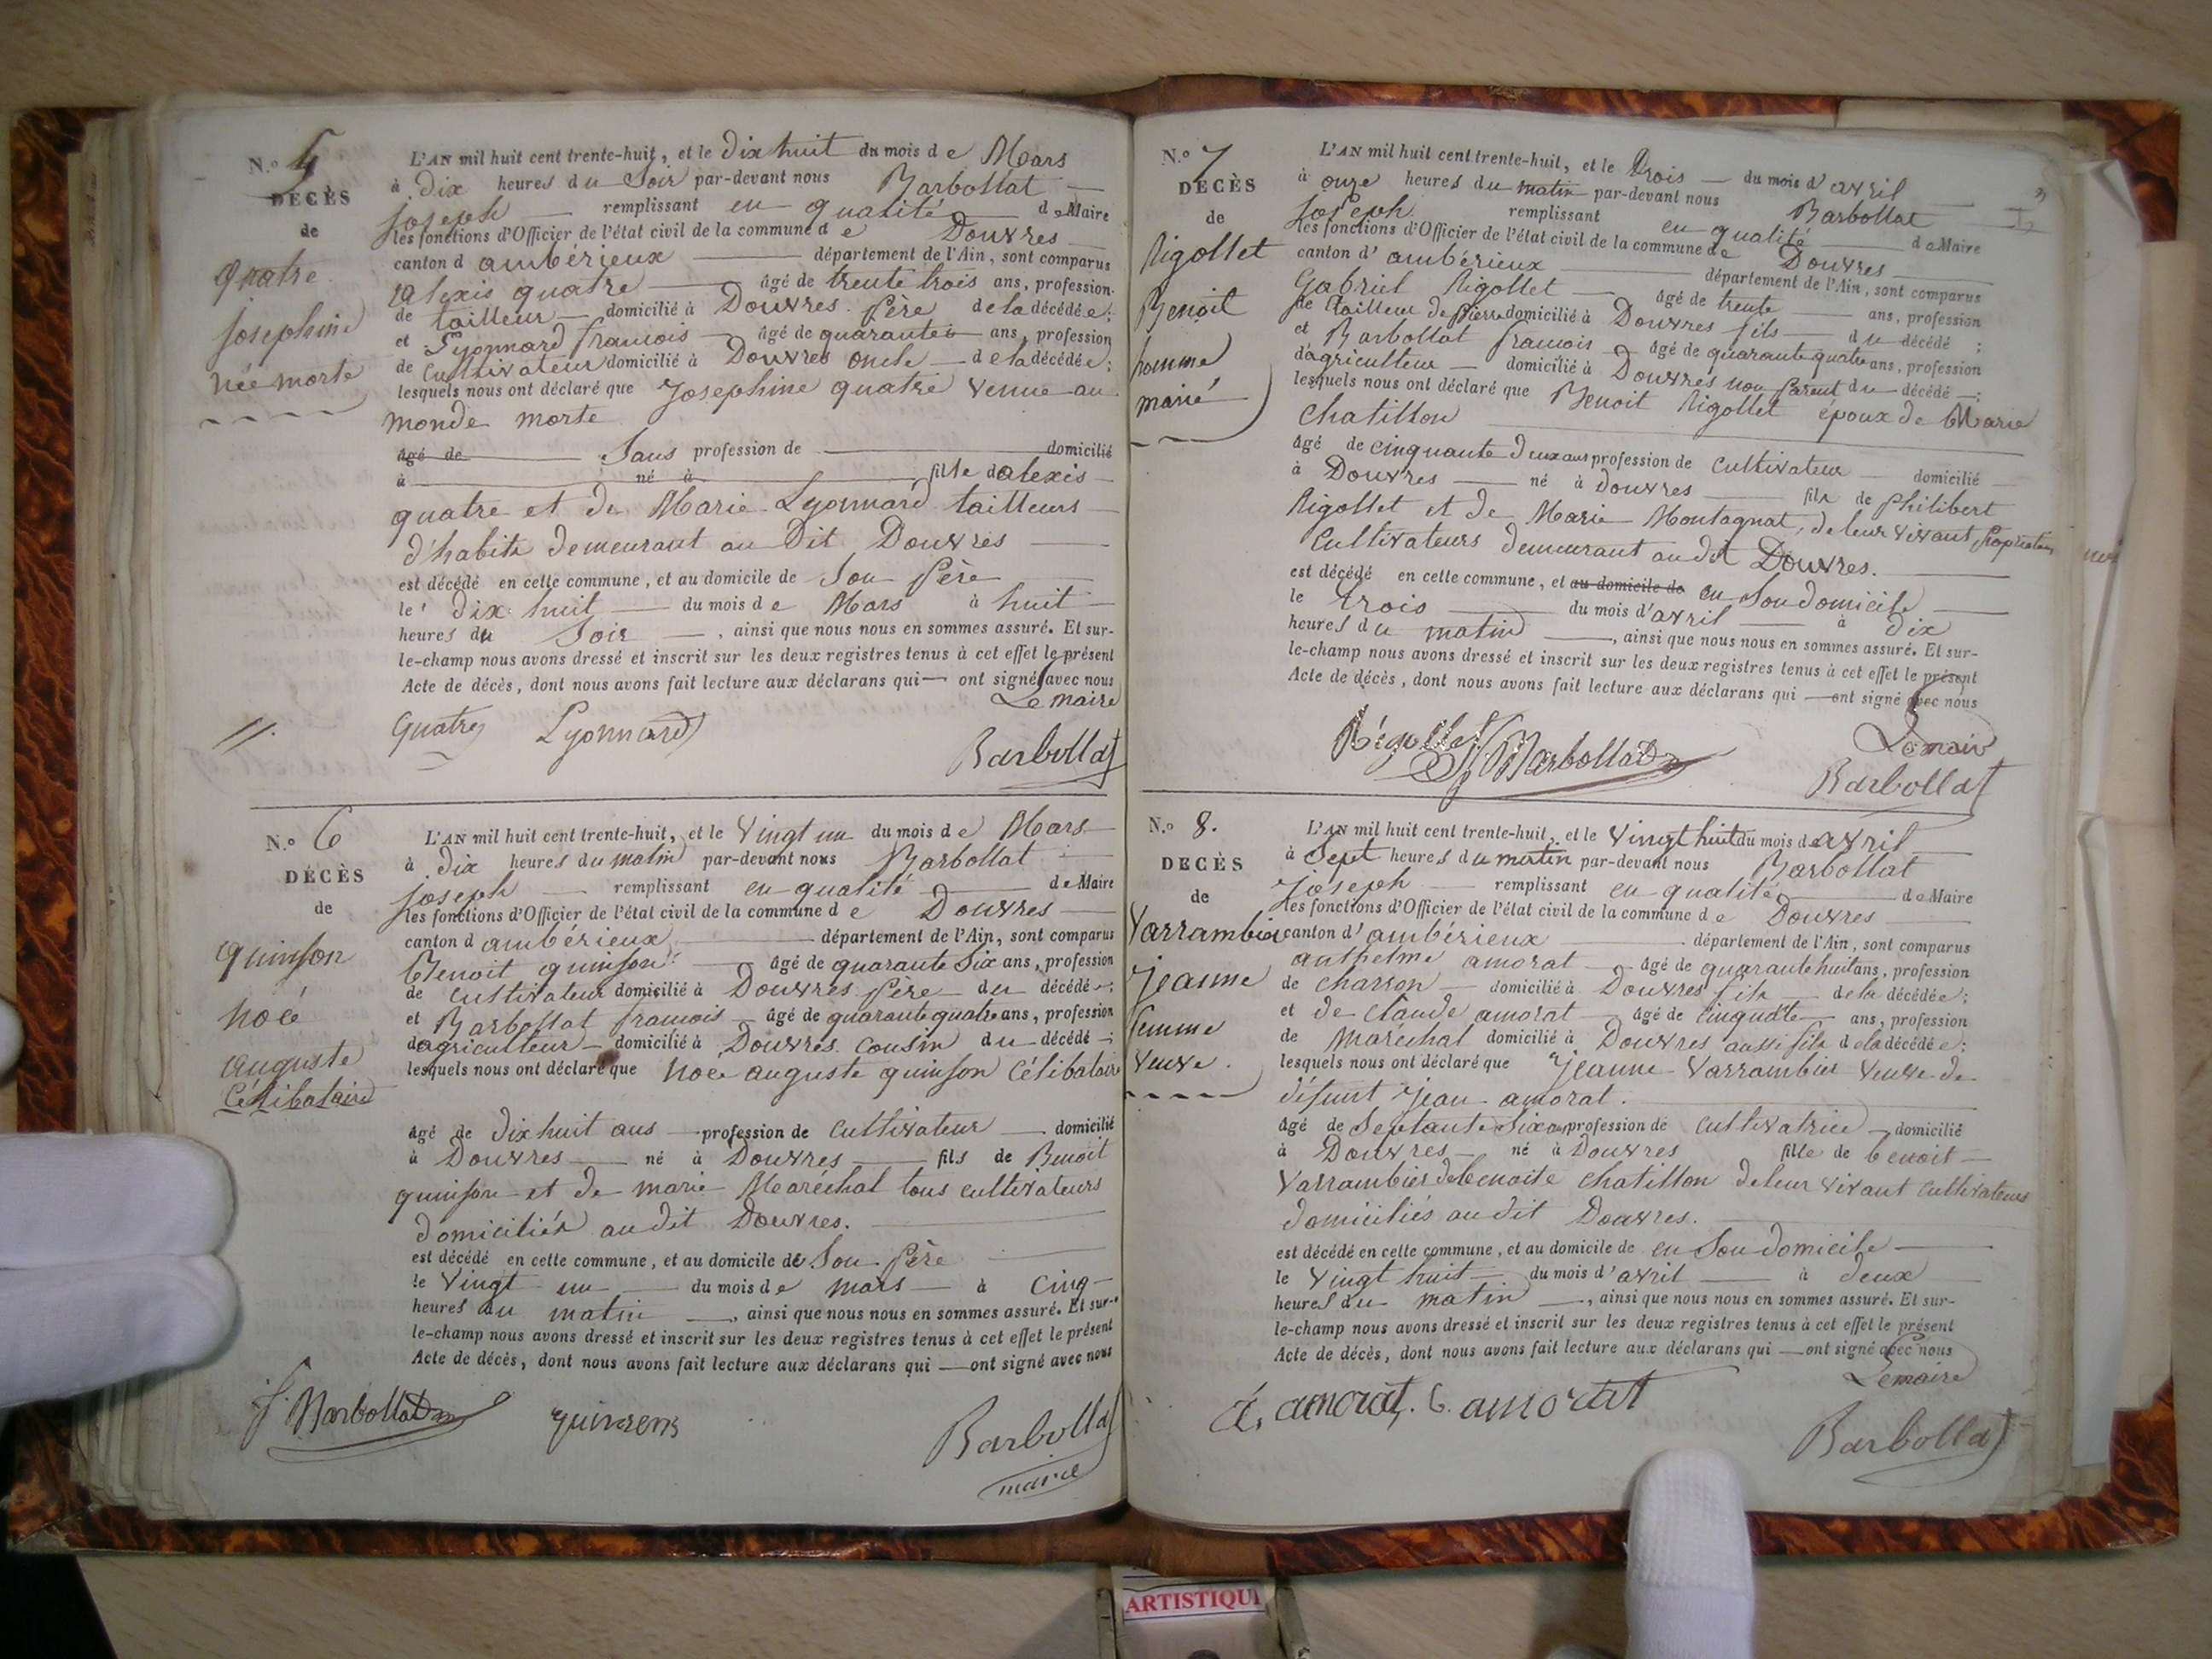 N.o 5
DÉCÈS
de
quatre
Josephine
née morte
L'AN mil huit cent trente-huit, et le dix huit du mois de Mars
à dix heures du Soir par-devant nous Barbollat
Joseph remplissant en qualité de Maire
les fonctions d'Officier de l'état civil de la commune de Douvres
canton d ambérieux département de l'Ain, sont comparus
Alexis quatre âgé de trente trois ans, profession
de tailleur domicilié à Douvres père de la décédée;
et Lyonnard francois âgé de quarante ans, profession
de Cultivateur domicilié à Douvres oncle de la décédée;
lesquels nous ont déclaré que Josephine quatre venue au
monde morte
âgé de Sans profession de domicilié
à né à fille d alexis
quatre et de Marie Lyonnard tailleurs
d'habits demeurant au dit Douvres
est décédé en cette commune, et au domicile de Son père
le dix huit du mois de Mars à huit
heures du Soir, ainsi que nous nous en sommes assuré. Et sur-
le-champ nous avons dressé et inscrit sur les deux registres tenus à cet effet le présent
Acte de décès, dont nous avons fait lecture aux déclarans qui ont signé avec nous
Le maire
Quatre Lyonnard
Barbollat
N.o 6
DÉCÈS
de
quinson
Noé
auguste
Célibataire
L'AN mil huit cent trente-huit, et le Vingt un du mois de Mars
à dix heures du matin par-devant nous Barbollat
Joseph remplissant en qualité de Maire
les fonctions d'Officier de l'état civil de la commune de Douvres
canton d ambérieux département de l'Ain, sont comparus
Benoit quinson âgé de quarante Six ans, profession
de cultivateur domicilié à Douvres père du décédé;
et Barbollat francois âgé de quarante quatre ans, profession
d agriculteur domicilié à Douvres cousin du décédé;
lesquels nous ont déclaré que Noé auguste quinson Célibataire
âgé de dix huit ans profession de cultivateur domicilié
à Douvres né à Douvres fils de Benoit
quinson et de marie Maréchal tous cultivateurs
domiciliés audit Douvres.
est décédé en cette commune, et au domicile de Son père
le Vingt un du mois de mars à cinq
heures du matin, ainsi que nous nous en sommes assuré. Et sur-
le-champ nous avons dressé et inscrit sur les deux registres tenus à cet effet le présent
Acte de décès, dont nous avons fait lecture aux déclarans qui ont signé avec nous
f. Barbollat quinson
Barbollat
maire
N.o 7
DÉCÈS
de
Rigollet
Benoit
homme
marié
L'AN mil huit cent trente-huit, et le trois du mois d'avril
à onze heures du matin par-devant nous Barbollat
Joseph remplissant en qualité de Maire
les fonctions d'Officier de l'état civil de la commune de Douvres
canton d'ambérieux département de l'Ain, sont comparus
Gabriel Rigollet âgé de trente ans, profession
de tailleur de pierre domicilié à Douvres fils du décédé;
et Barbollat francois âgé de quarante quatre ans, profession
d'agriculteur domicilié à Douvres non parent du décédé;
lesquels nous ont déclaré que Benoit Rigollet époux de Marie
Chatillon
âgé de cinquante deux ans profession de cultivateur domicilié
à Douvres né à douvres fils de philibert
Rigollet et de Marie Montagnat, de leur vivant propriétaires
Cultivateurs demeurant au dit Douvres.
est décédé en cette commune, et au domicile de en Son domicile
le trois du mois d'avril à dix
heures du matin, ainsi que nous nous en sommes assuré. Et sur-
le-champ nous avons dressé et inscrit sur les deux registres tenus à cet effet le présent
Acte de décès, dont nous avons fait lecture aux déclarans qui ont signé avec nous
Le maire
Rigollet f. Barbollat
Barbollat
N.o 8.
DÉCÈS
de
Varrambier
jeanne
femme
veuve.
L'AN mil huit cent trente-huit, et le Vingt huit du mois d avril
à Sept heures du matin par-devant nous Barbollat
Joseph remplissant en qualité de Maire
les fonctions d'Officier de l'état civil de la commune de Douvres
canton d'ambérieux département de l'Ain, sont comparus
anthelme amorat âgé de quarante huit ans, profession
de charron domicilié à Douvres fils de la décédée;
et de claude amorat âgé de cinquante ans, profession
de Maréchal domicilié à Douvres aussi fils de la décédée;
lesquels nous ont déclaré que Jeanne Varrambier veuve de
défunt Jean amorat.
âgé de Septante Six ans profession de cultivatrice domicilié
à Douvres né à Douvres fille de benoit
Varrambier de benoite chatillon de leur vivant cultivateurs
domiciliés au dit Douvres.
est décédé en cette commune, et au domicile de en Son domicile
le Vingt huit du mois d'avril à deux
heures du matin, ainsi que nous nous en sommes assuré. Et sur-
le-champ nous avons dressé et inscrit sur les deux registres tenus à cet effet le présent
Acte de décès, dont nous avons fait lecture aux déclarans qui ont signé avec nous
Le maire
a. amorat. C. amorat
Barbollat
ARTISTIQU